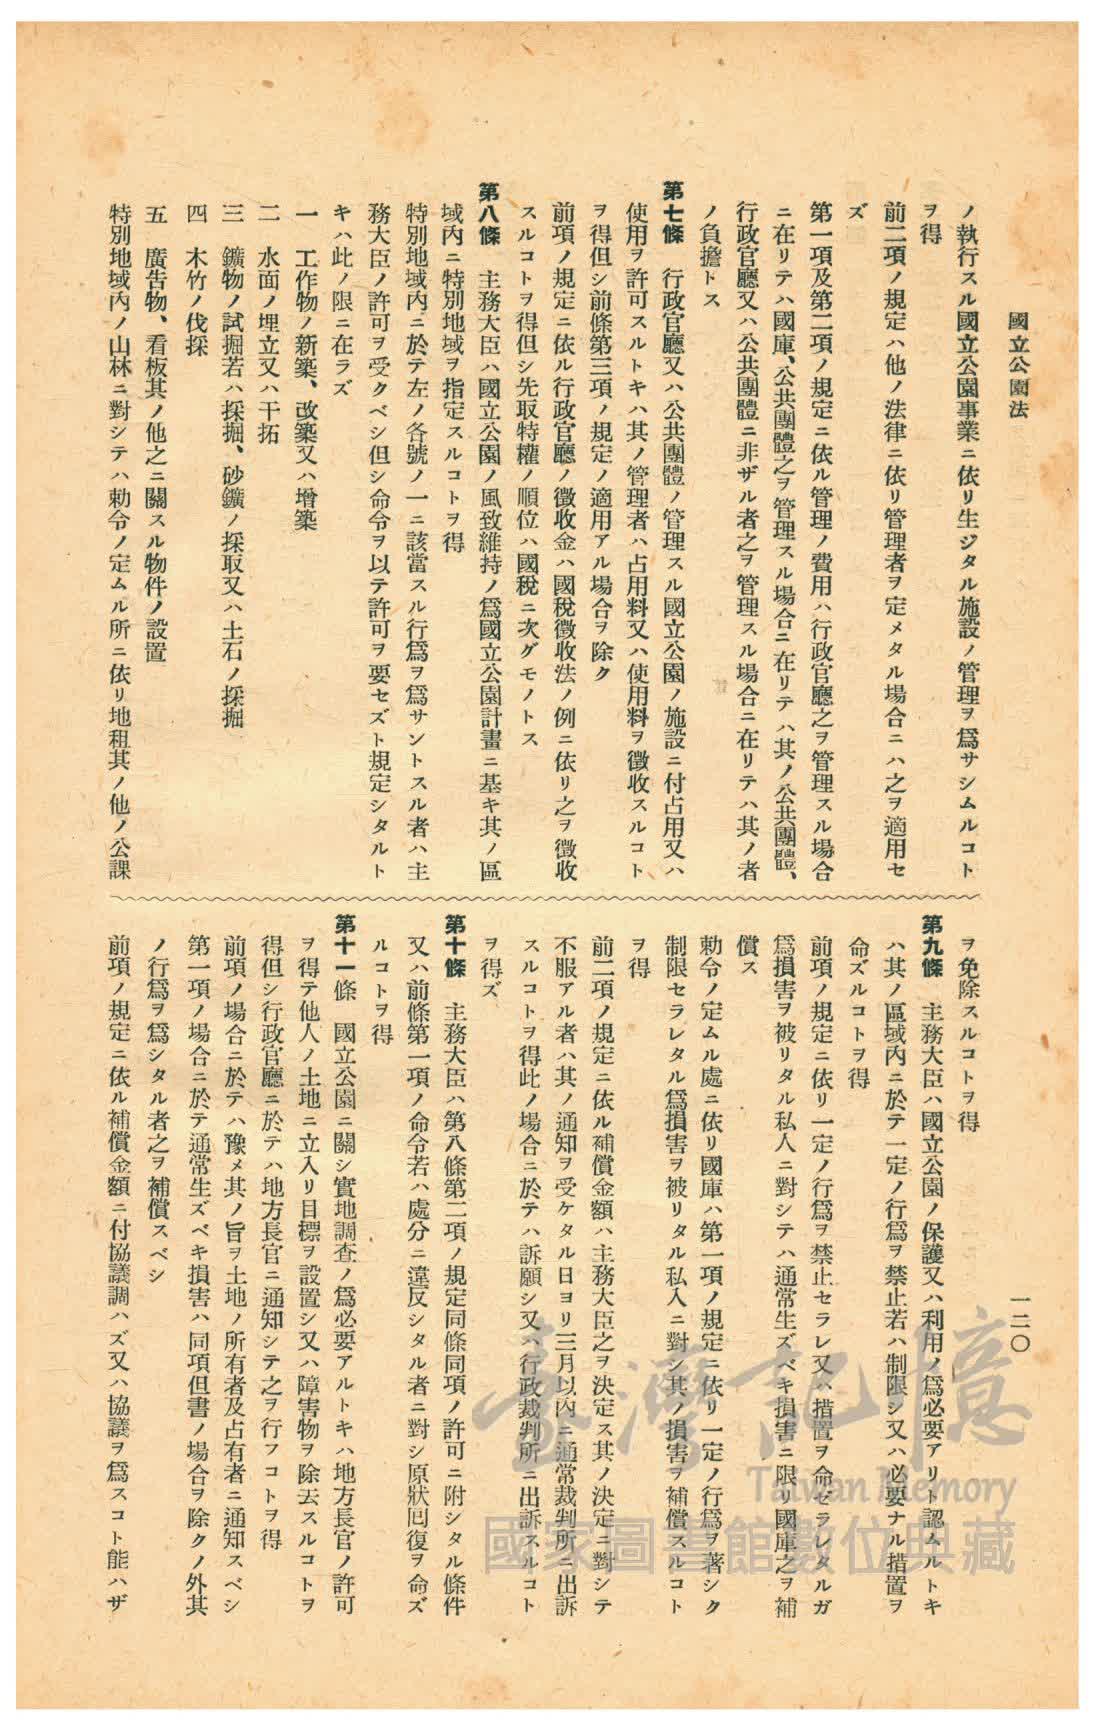 國立公園法
一二〇
ノ執行スル國立公園事業ニ依リ生ジタル施設ノ管理ヲ爲サシムルコト
ヲ得
前二項ノ規定ハ他ノ法律ニ依リ管理者ヲ定メタル場合ニハ之ヲ適用セ
ズ
第一項及第二項ノ規定ニ依ル管理ノ費用ハ行政官廳之ヲ管理スル場合
ニ在リテハ國庫、公共團體之ヲ管理スル場合ニ在リテハ其ノ公共團體、
行政官廳又ハ公共團體ニ非ザル者之ヲ管理スル場合ニ在リテハ其ノ者
ノ負擔トス
第七條　行政官廳又ハ公共團體ノ管理スル國立公園ノ施設ニ付占用又ハ
使用ヲ許可スルトキハ其ノ管理者ハ占用料又ハ使用料ヲ徵收スルコト
ヲ得但シ前條第三項ノ規定ノ適用アル場合ヲ除ク
前項ノ規定ニ依ル行政官廳ノ徵收金ハ國稅徵收法ノ例ニ依リ之ヲ徵收
スルコトヲ得但シ先取特權ノ順位ハ國稅ニ次グモノトス
第八條　主務大臣ハ國立公園ノ風致維持ノ爲國立公園計畫ニ基キ其ノ區
域內ニ特別地域ヲ指定スルコトヲ得
特別地域內ニ於テ左ノ各號ノ一ニ該當スル行爲ヲ爲サントスル者ハ主
務大臣ノ許可ヲ受クベシ但シ命令ヲ以テ許可ヲ要セズト規定シタルト
キハ此ノ限ニ在ラズ
一　工作物ノ新築、改築又ハ增築
二　水面ノ埋立又ハ干拓
三　鑛物ノ試掘若ハ採掘、砂鑛ノ採取又ハ土石ノ採掘
四　木竹ノ伐採
五　廣告物、看板其ノ他之ニ關スル物件ノ設置
特別地域內ノ山林ニ對シテハ勅令ノ定ムル所ニ依リ地租其ノ他ノ公課
ヲ免除スルコトヲ得
第九條　主務大臣ハ國立公園ノ保護又ハ利用ノ爲必要アリト認ムルトキ
ハ其ノ區域內ニ於テ一定ノ行爲ヲ禁止若ハ制限シ又ハ必要ナル措置ヲ
命ズルコトヲ得
前項ノ規定ニ依リ一定ノ行爲ヲ禁止セラレ又ハ措置ヲ命ゼラレタルガ
爲損害ヲ被リタル私人ニ對シテハ通常生ズベキ損害ニ限リ國庫之ヲ補
償ス
勅令ノ定ムル處ニ依リ國庫ハ第一項ノ規定ニ依リ一定ノ行爲ヲ著シク
制限セラレタル爲損害ヲ被リタル私人ニ對シ其ノ損害ヲ補償スルコト
ヲ得
前二項ノ規定ニ依ル補償金額ハ主務大臣之ヲ決定ス其ノ決定ニ對シテ
不服アル者ハ其ノ通知ヲ受ケタル日ヨリ三月以內ニ通常裁判所ニ出訴
スルコトヲ得此ノ場合ニ於テハ訴願シ又ハ行政裁判所ニ出訴スルコト
ヲ得ズ
第十條　主務大臣ハ第八條第二項ノ規定同條同項ノ許可ニ附シタル條件
又ハ前條第一項ノ命令若ハ處分ニ違反シタル者ニ對シ原狀囘復ヲ命ズ
ルコトヲ得
第十一條　國立公園ニ關シ實地調查ノ爲必要アルトキハ地方長官ノ許可
ヲ得テ他人ノ土地ニ立入リ目標ヲ設置シ又ハ障害物ヲ除去スルコトヲ
得但シ行政官廳ニ於テハ地方長官ニ通知シテ之ヲ行フコトヲ得
前項ノ場合ニ於テハ豫メ其ノ旨ヲ土地ノ所有者及占有者ニ通知スベシ
第一項ノ場合ニ於テ通常生ズベキ損害ハ同項但書ノ場合ヲ除クノ外其
ノ行爲ヲ爲シタル者之ヲ補償スベシ
前項ノ規定ニ依ル補償金額ニ付協議調ハズ又ハ協議ヲ爲スコト能ハザ
臺灣記憶
Taiwan Memory
國家圖書館數位典藏